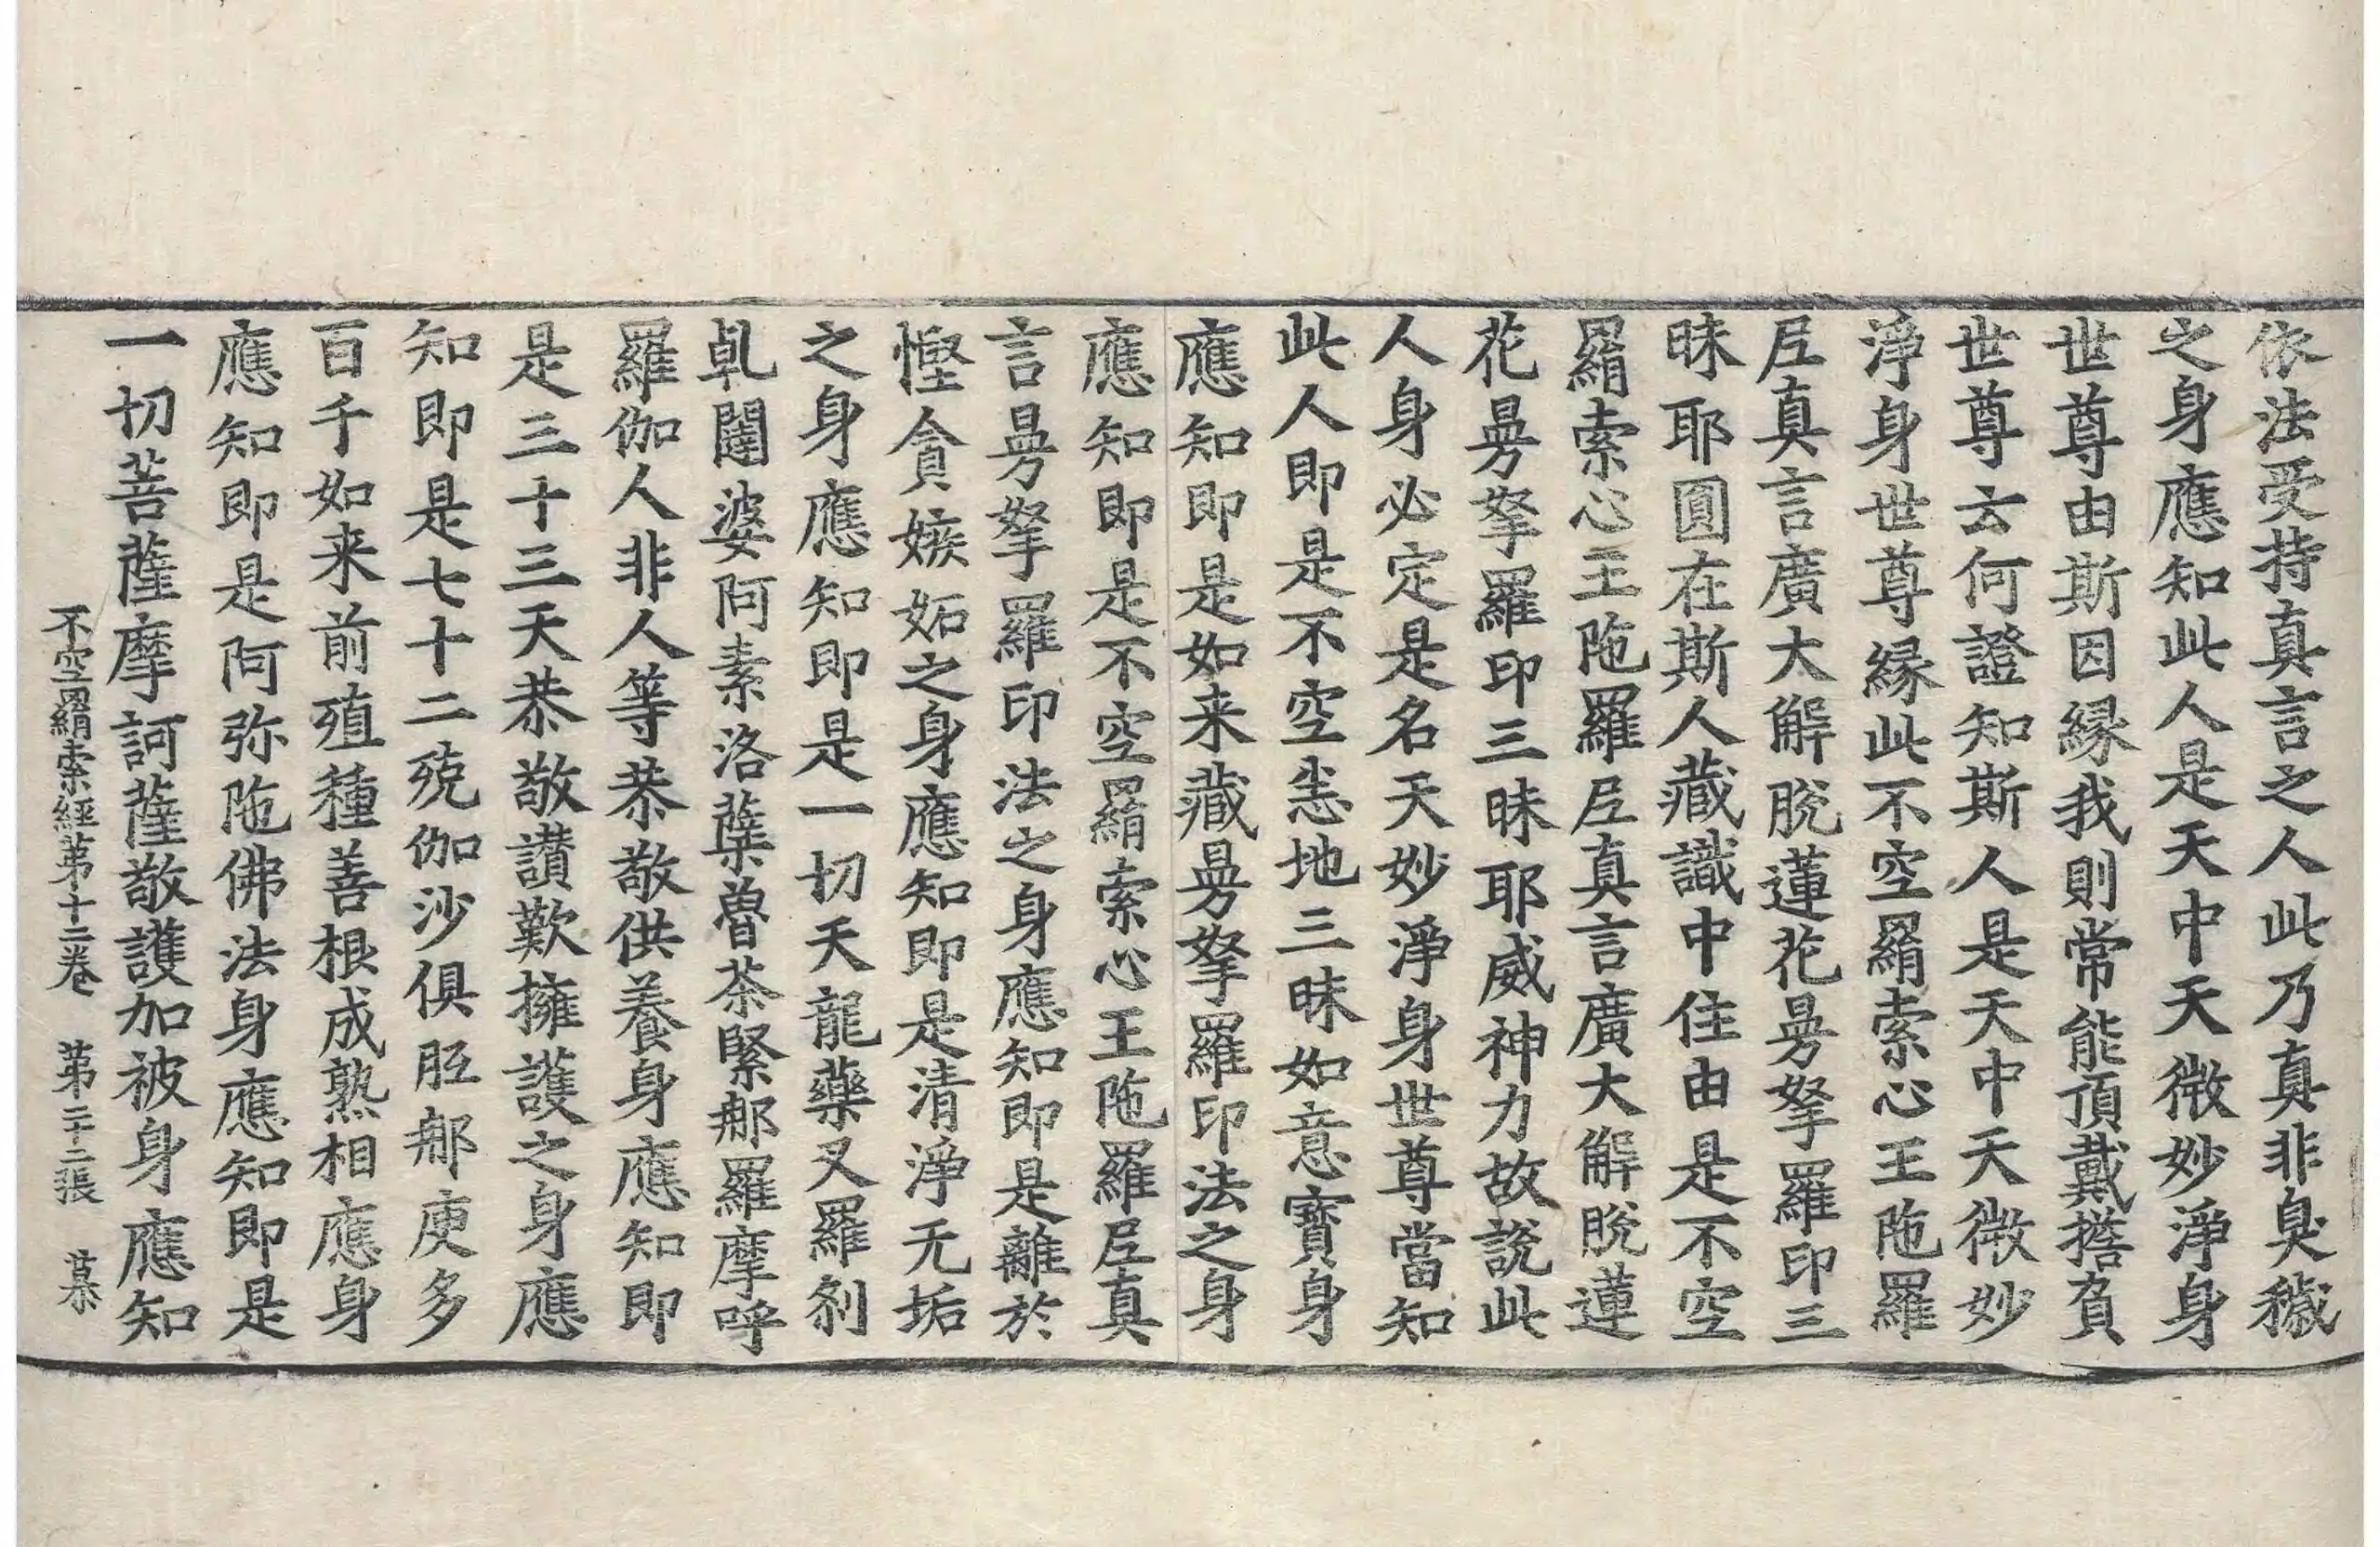 依法受持真言之人此乃真非臭穢
之身應知此人是天中天微妙淨身
世尊由斯因縁我則常能頂戴擔負
世尊云何證知斯人是天中天微妙
淨身世尊縁此不空羂索心王陁羅
尼真言廣大解脫蓮花曼拏羅印三
昧耶圓在斯人藏識中住由是不空
羂索心王陁羅尼真言廣大解脫蓮
花曼拏羅印三昧耶威神力故說此
人身必定是名天妙淨身世尊當知
此人即是不空悉地三昧如意寶身
應知即是如来藏曼拏羅印法之身
應知即是不空羂索心王陁羅尼真
言曼拏羅印法之身應知即是離於
慳貪嫉妬之身應知即是清淨无垢
之身應知即是一切天龍藥叉羅剎
乹闥婆阿素洛蘖魯荼緊那羅摩呼
羅伽人非人等恭敬供養身應知即
是三十三天恭敬讃歎擁護之身應
知即是七十二殑伽沙俱胝那庾多
百千如来前殖種善根成熟相應身
應知即是阿弥陁佛法身應知即是
一切菩薩摩訶薩敬護加被身應知
不空羂索經第十二卷 第二十二張 慕